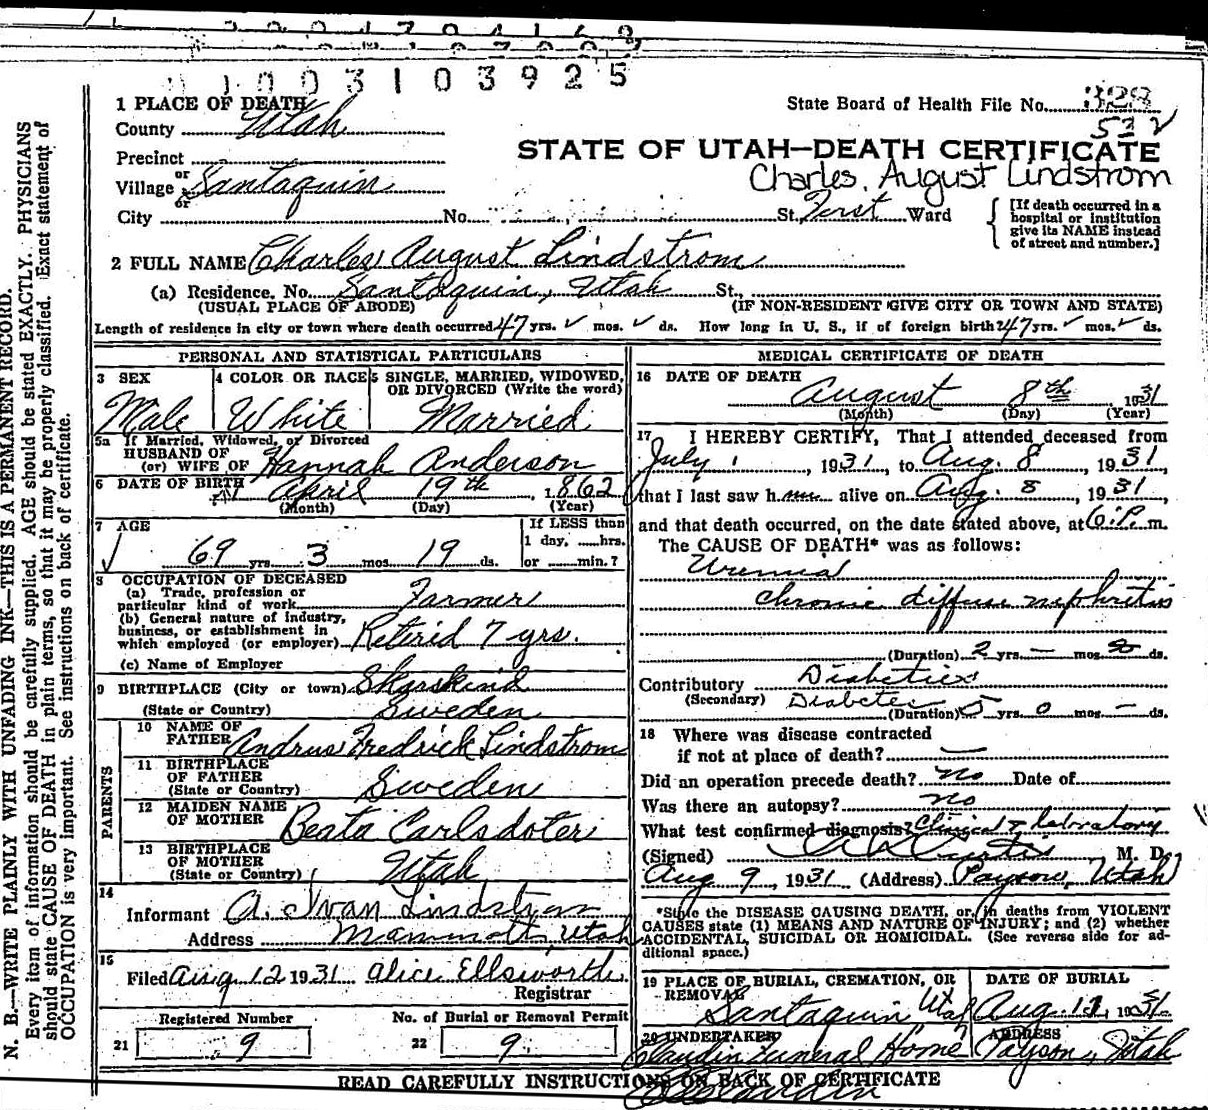 11003103925
1 PLACE OF DEATH
State Board of Health File No. 328
County Utah
532
Precinct
STATE OF UTAH—DEATH CERTIFICATE
or
Village Santaquin
Charles, August Lindstrom
or
City No. St. First Ward
[If death occurred in a hospital or institution give its NAME instead of street and number.]
2 FULL NAME Charles August Lindstrom
(a) Residence. No. Santaquin, Utah St.,
(USUAL PLACE OF ABODE) (IF NON-RESIDENT GIVE CITY OR TOWN AND STATE)
Length of residence in city or town where death occurred 47 yrs. ✓ mos. ✓ ds. How long in U. S., if of foreign birth 47 yrs. ✓ mos. ✓ ds.
PERSONAL AND STATISTICAL PARTICULARS
3 SEX
Male
4 COLOR OR RACE
White
5 SINGLE, MARRIED, WIDOWED,
OR DIVORCED (Write the word)
Married
5a If Married, Widowed, or Divorced
HUSBAND OF
(or) WIFE OF Hannah Anderson
6 DATE OF BIRTH April 19th, 1862
(Month) (Day) (Year)
7 AGE
69 yrs. 3 mos. 19 ds.
If LESS than
1 day, ......hrs.
or ......min.?
8 OCCUPATION OF DECEASED
(a) Trade, profession or
particular kind of work Farmer
(b) General nature of industry,
business, or establishment in
which employed (or employer) Retired 7 yrs.
(c) Name of Employer
9 BIRTHPLACE (City or town) Skarskind
(State or Country) Sweden
PARENTS
10 NAME OF
FATHER Andrus Fredrick Lindstrom
11 BIRTHPLACE
OF FATHER
(State or Country) Sweden
12 MAIDEN NAME
OF MOTHER Beata Carlsdoter
13 BIRTHPLACE
OF MOTHER
(State or Country) Utah
14
Informant A. Ivan Lindstrom
Address Mammoth, Utah
15
Filed Aug 12 1931 Alice Ellsworth
Registrar
Registered Number
21 9
No. of Burial or Removal Permit
22 9
MEDICAL CERTIFICATE OF DEATH
16 DATE OF DEATH
August 8th, 1931
(Month) (Day) (Year)
17 I HEREBY CERTIFY, That I attended deceased from
July 1, 1931, to Aug. 8, 1931,
that I last saw him alive on Aug. 8, 1931,
and that death occurred, on the date stated above, at 6 P. m.
The CAUSE OF DEATH* was as follows:
Uremia
chronic diffuse nephritis
(Duration) 2 yrs. — mos. ds.
Contributory Diabetes
(Secondary) Diabetes
(Duration) 5 yrs. 0 mos. — ds.
18 Where was disease contracted
if not at place of death? —
Did an operation precede death? no Date of
Was there an autopsy? no
What test confirmed diagnosis? Clinical & laboratory
(Signed) Curtis M. D.
Aug 9, 1931 (Address) Payson, Utah
*State the DISEASE CAUSING DEATH, or, in deaths from VIOLENT
CAUSES state (1) MEANS AND NATURE OF INJURY; and (2) whether
ACCIDENTAL, SUICIDAL OR HOMICIDAL. (See reverse side for ad-
ditional space.)
19 PLACE OF BURIAL, CREMATION, OR
REMOVAL
Santaquin Utah
DATE OF BURIAL
Aug. 11, 1931.
20 UNDERTAKER
Funeral Home
ADDRESS
Payson, Utah
READ CAREFULLY INSTRUCTIONS ON BACK OF CERTIFICATE
N. B.—WRITE PLAINLY WITH UNFADING INK—THIS IS A PERMANENT RECORD.
Every item of information should be carefully supplied. AGE should be stated EXACTLY. PHYSICIANS
should state CAUSE OF DEATH in plain terms, so that it may be properly classified. Exact statement of
OCCUPATION is very important. See instructions on back of certificate.